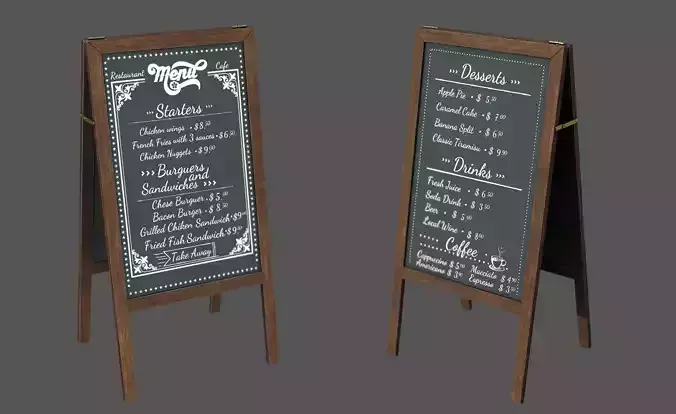 Restaurant Menu Cafe
Starters
Chicken wings • $8.50
French Fries with 3 sauces • $6.50
Chicken Nuggets • $9.00
››› Burguers and
Sandwiches ›››
Chese Burguer • $5.00
Bacon Burger • $8.50
Grilled Chiken Sandwich • $9.00
Fried Fish Sandwich • $9.50
Take Away
››› Desserts ›››
Apple Pie • $ 5.50
Caramel Cake • $ 7.00
Banana Split • $ 6.50
Classic Tiramisu • $ 9.90
››› Drinks ›››
Fresh Juice • $ 6.50
Soda Drink • $ 3.50
Beer • $ 5.00
Local Wine • $ 8.00
Coffee
Cappuccino $ 5.00 Macciato $ 4.90
Americano $ 3.90 Espresso $ 3.50